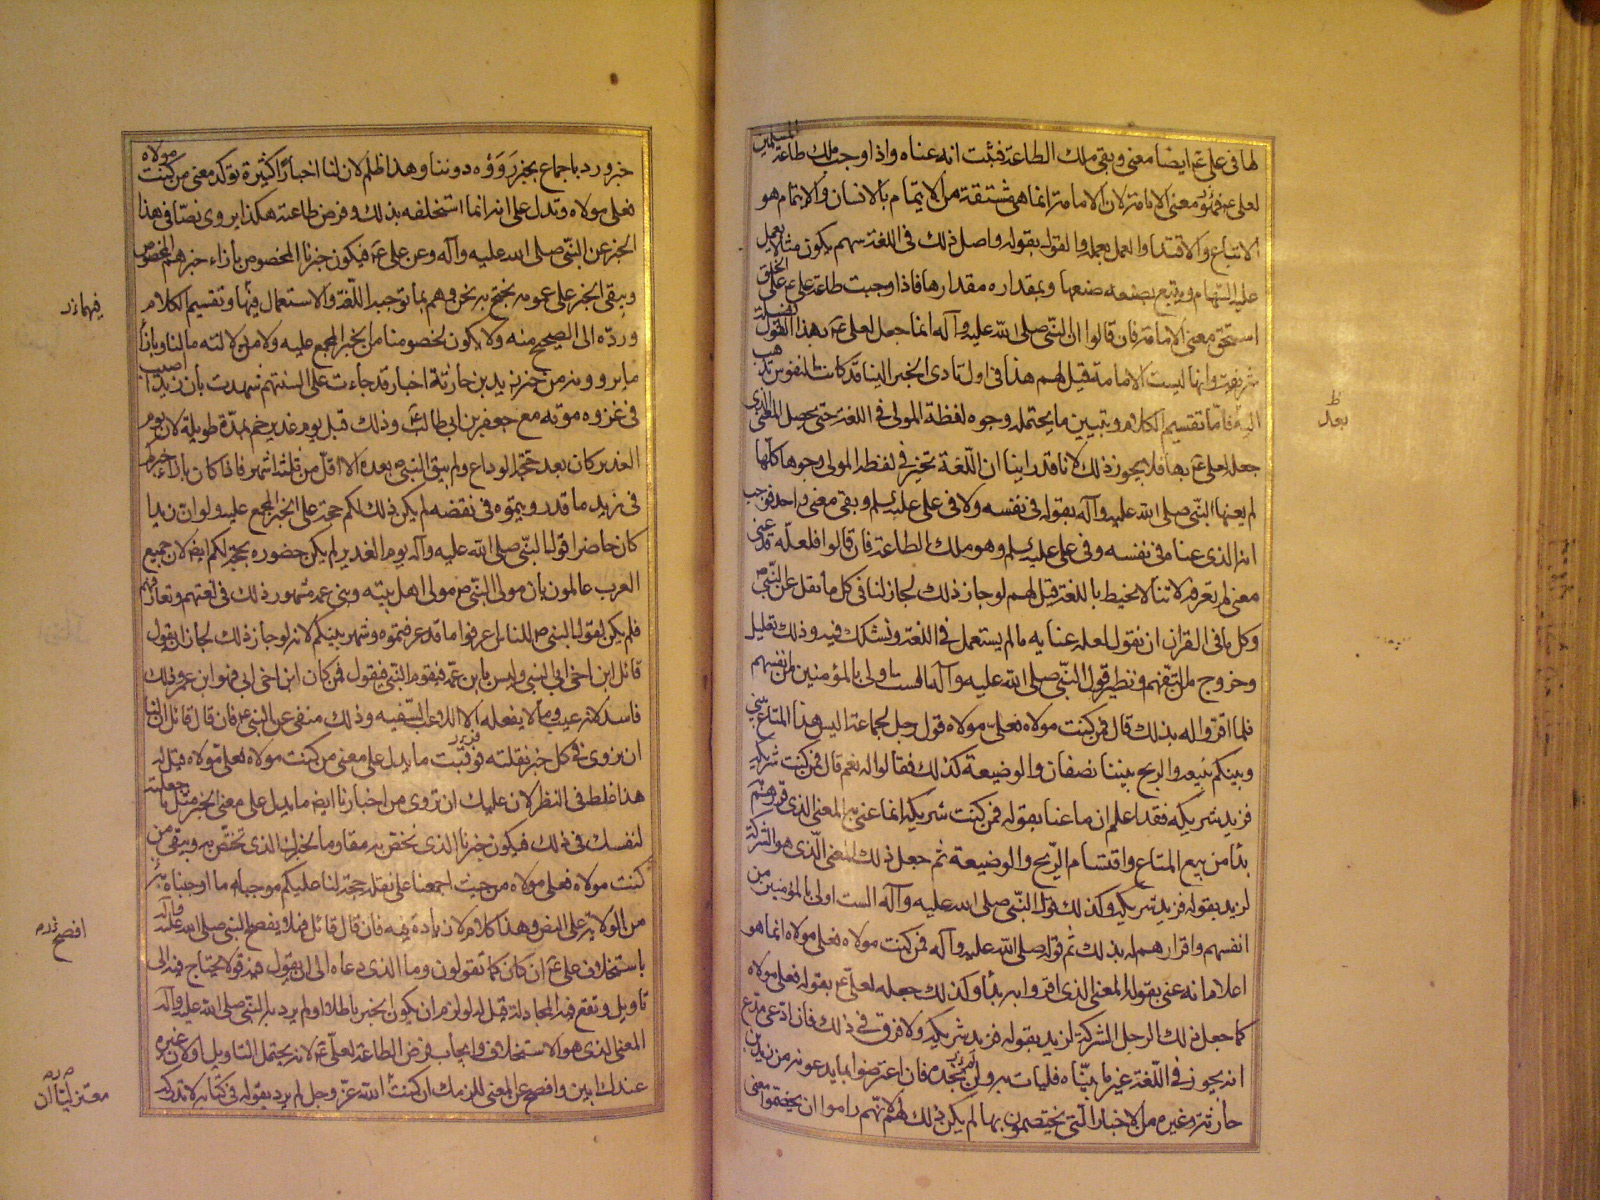 لها في على ع ايضا معنى وبقى ملك الطاعة فثبت انه عناه واذا وجب ملك طاعة المسلمين
لعلى ع فهو معنى الامامة لان الامامة انما هي مشتقة من الايتمام بالانسان والايتمام هو
الاتباع والاقتداء والعمل بعمله والقول بقوله واصل ذلك في اللغة سهم يكون مثلا يعمل
عليه السهام ويتبع بصنعه صنعها وبمقداره مقدارها فاذا وجبت طاعة على ع على الخلق
استحق معنى الامامة فان قالوا ان النبى صلى الله عليه وآله انما جعل لعلى ع بهذا القول فضيلة
شريفة وانها ليست الامامة قيل لهم هذا في اول تأدى الخبر الينا قد كانت النفوس تذهب
اليه فاما تقسيم الكلام وتبيين ما يحتمله وجوه لفظة المولى في اللغة حتى يحصل المعنى الذى
جعله لعلى ع بها فلا يجوز ذلك لانا قد راينا ان اللغة تجيز في لفظة المولى وجوها كلها
لم يعنها النبى صلى الله عليه وآله بقوله في نفسه ولا في على عليه السلم وبقى معنى واحد فوجب
انه الذى عناه في نفسه وفى على عليه السلم وهو ملك الطاعة فان قالوا فلعله قد عنى
معنى لم نعرفه لاننا لا نحيط باللغة قيل لهم لو جاز ذلك لجاز لنا في كل ما نقل عن النبى ص
وكل ما في القران ان نقول لعله عنا به ما لم يستعمل في اللغة ونشكك فيه وذلك تعليل
وخروج من التفهم ونظير قول النبى صلى الله عليه وآله الست اولى بالمؤمنين من انفسهم
فلما اقروا له بذلك قال فمن كنت مولاه فعلى مولاه قول رجل لجماعة اليس هذا المتاع بينى
وبينكم نبيعه والربح بيننا نصفان والوضيعة كذلك فقالوا له نعم قال فمن كنت شريكه
فزيد شريكه فقد اعلم ان ما عناه بقوله فمن كنت شريكه انما عنى به المعنى الذى قررهم به
بدأ من بيع المتاع واقتسام الربح والوضيعة ثم جعل ذلك المعنى الذى هو الشركة
لزيد بقوله فزيد شريكه وكذلك قول النبى صلى الله عليه وآله الست اولى بالمؤمنين من
انفسهم واقرارهم له بذلك ثم قوله صلى الله عليه وآله فمن كنت مولاه فعلى مولاه انما هو
اعلام انه عنى بقوله المعنى الذى اقروا به بدأ وكذلك جعله لعلى ع بقوله فعلى مولاه
كما جعل ذلك الرجل الشركة لزيد بقوله فزيد شريكه ولا فرق في ذلك فان ادعى مدع
انه يجوز في اللغة غير ما بيناه فليات به ولن يجده فان اعترضوا بما يدعونه من زيد بن
حارثة وغيره من الاخبار التى يختصمون بها لم يكن ذلك لهم لانهم راموا ان يخصموا معنى
بعد
خبر ورد باجماع بخبر رووه دوننا وهذا ظلم لان لنا اخبارا كثيرة تؤكد معنى من كنت مولاه
فعلى مولاه وتدل على انه انما استخلفه بذلك وفرض طاعته هكذا يروى نصا في هذا
الخبر عن النبى صلى الله عليه وآله وعن على ع فيكون خبرنا المخصوص بازاء خبرهم المخصوص
ويبقى الخبر على عمومه يحتج به نحن وهم بما توجبه اللغة والاستعمال فيها وتقسيم الكلام
ورده الى الصحيح منه ولا يكون لخصومنا من الخبر المجمع عليه ولا من دلالته ما لنا وبازاء
ما يروونه من خبر زيد بن حارثة اخبار قد جاءت على السنتهم شهدت بان زيدا اصيب
في غزوه موته مع جعفر بن ابى طالب ع وذلك قبل يوم غدير خم بمدة طويلة لان يوم
الغدير كان بعد حجة الوداع ولم يبق النبى ص بعده الا اقل من ثلثة اشهر فاذا كان بازاء خبركم
في زيد ما قد رويتموه في نقضه لم يكن ذلك لكم حجة على الخبر المجمع عليه ولو ان زيدا
كان حاضرا قول النبى صلى الله عليه وآله يوم الغدير لم يكن حضوره بحجة لكم ايضا لان جميع
العرب عالمون بان مولى النبى ص مولى اهل بيته وبنى عمه مشهور ذلك في لغتهم وتعارفهم
فلم يكن لقول النبى ص للناس اعرفوا ما قد عرفتموه وشهر بينكم لانه لو جاز ذلك لجاز ان يقول
قائل ابن اخى ابى النبى وليس بابن عمه فيقوم النبى فيقول فمن كان ابن اخى ابى فهو ابن عمى وذلك
فاسد لانه عيب وما لا يفعله الا اللاعب السفيه وذلك منفى عن النبى ع فان قال قائل ان لنا
ان نروى في كل خبر نقلته فرقتنا ما يدل على معنى من كنت مولاه فعلى مولاه قيل له
هذا غلط في النظر لان عليك ان تروى من اخبارنا ايضا ما يدل على معنى الخبر مثل ما جعلته
لنفسك في ذلك فيكون خبرنا الذى نختص به مقاوما لخبرك الذى تختص به ويبقى من
كنت مولاه فعلى مولاه من حيث اجمعنا على نقله حجة لنا عليكم موجبا له ما اوجبناه به
من الولاية على النص وهذا كلام لا زيادة فيه فان قال قائل فهلا يفصح النبى صلى الله عليه وآله
باستخلاف على ع ان كان كما تقولون وما الذى دعاه الى ان يقول فيه قولا يحتاج فيه الى
تاويل وتقع فيه المجادلة قيل له لو لزم ان يكون الخبر باطلا او لم يرد به النبى صلى الله عليه وآله
المعنى الذى هو الاستخلاف وايجاب فرض الطاعة لعلى ع لانه يحتمل التاويل او لان غيره
عندك ابين وافصح عن المعنى للزمك ان كنت ان الله عز وجل لم يرد بقوله في كتابه لا تدركه
افصح
معتزليا ان